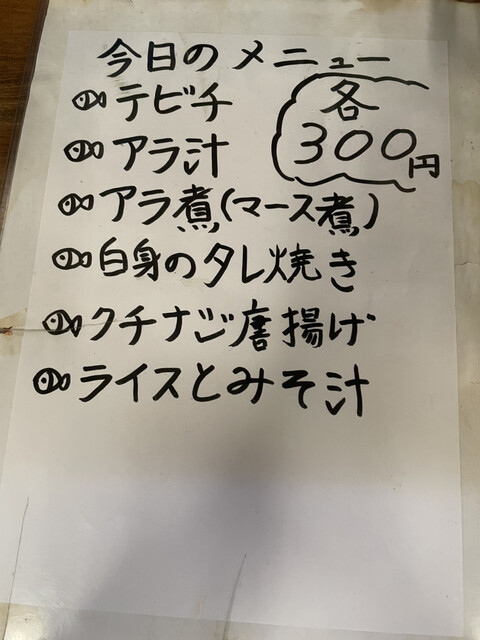 今日のメニュー
テビチ
アラ汁
アラ煮(マース煮)
白身のタレ焼き
クチナジ唐揚げ
ライスとみそ汁
各
300円